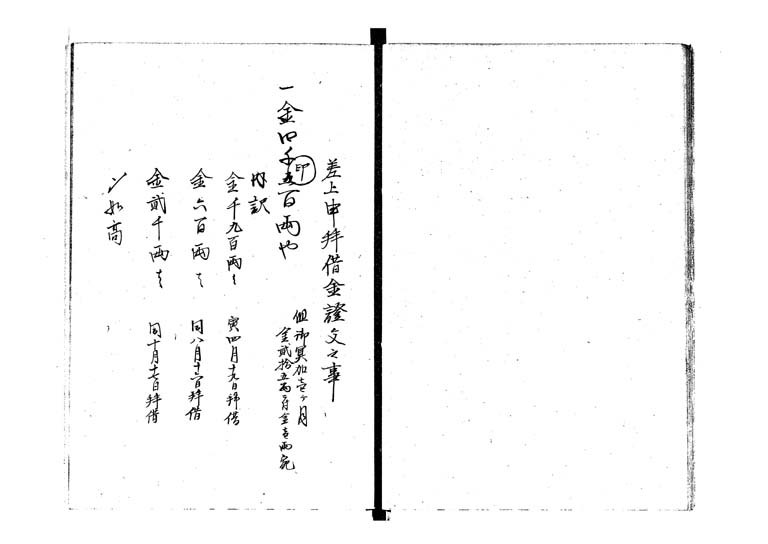 差上申拝借金證文之事
一金四千五百両也
印
但御冥加壱ヶ月
金貮拾五両ニ付金壱両宛
内訳
金千九百両ハ 寅四月十九日拝借
金六百両ハ 同八月十六日拝借
金貮千両ハ 同十月十七日拝借
〆如高